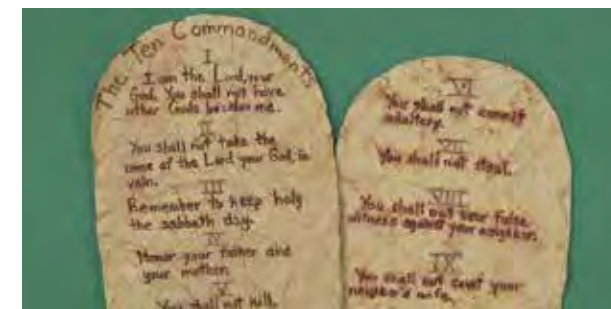 The Ten Commandments
I
I am the Lord, your
God. You shall not have
other Gods besides me.
II
You shall not take the
name of the Lord your God in
vain.
III
Remember to keep holy
the sabbath day.
IV
Honor your father and
your mother.
V
You shall not kill.
VI
You shall not commit
adultery.
VII
You shall not steal.
VIII
You shall not bear false
witness against your neighbor.
IX
You shall not covet your
neighbor's wife.